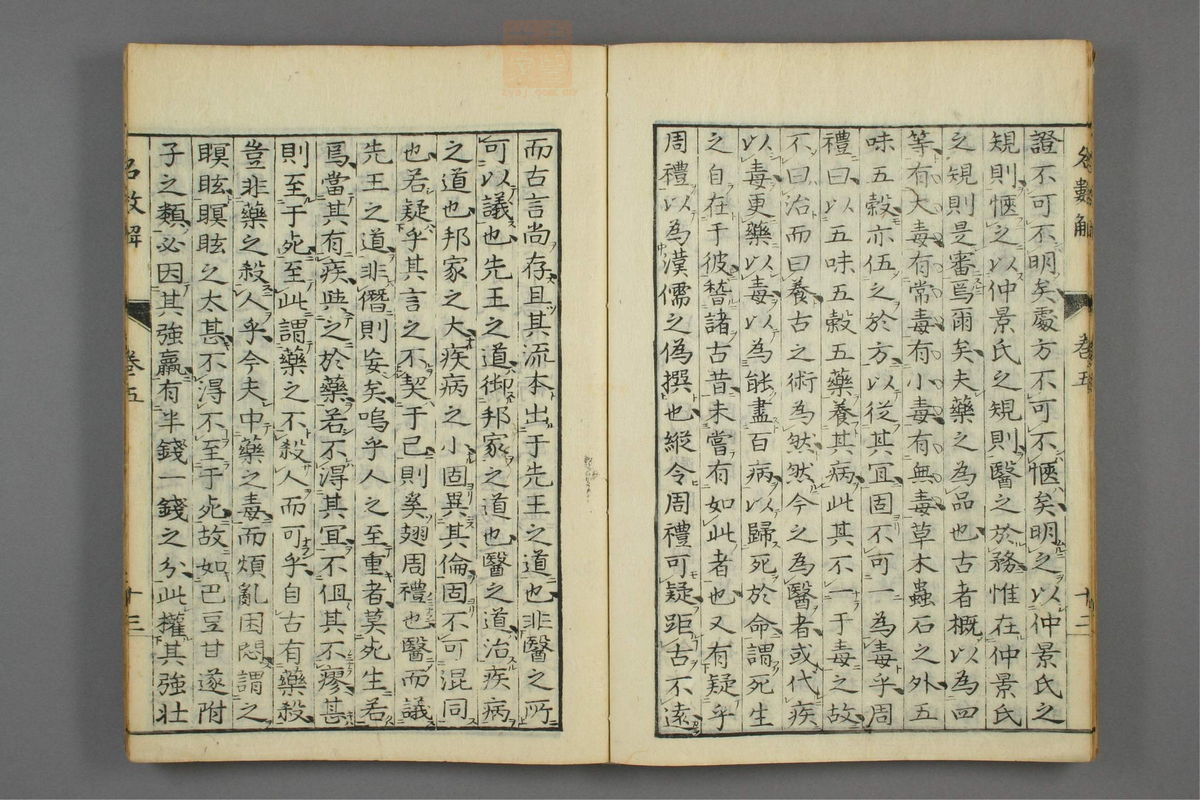 證不可不明矣處方不可不愜矣明之以仲景氏之
規則愜之以仲景氏之規則醫之於務惟在仲景氏
之規則是審焉爾矣夫藥之為品也古者概以為四
等有大毒有常毒有小毒有無毒草木蟲石之外五
味五穀亦伍之於方以從其宜固不可一為毒乎周
禮曰以五味五穀五藥養其病此其不一于毒之故
不曰治而曰養古之術為然然今之為醫者或代疾
以毒更藥以毒以為能盡百病以歸死於命謂死生
之自在于彼稽諸古昔未嘗有如此者也又有疑乎
周禮以為漢儒之偽撰也縱令周禮可疑距古不遠
卷五
十二
而古言尚存且其流本出于先王之道也非醫之所
可以議也先王之道御邦家之道也醫之道治疾病
之道也邦家之大疾病之小固異其倫固不可混同
也若疑乎其言之不契于己則矣翅周禮也醫而議
先王之道非僭則妄矣嗚乎人之至重者莫死生若
焉當其有疾與之於藥若不得其宜不但其不瘳甚
則至于死至此謂藥之不殺人而可乎自古有藥殺
豈非藥之殺人乎今夫中藥之毒而煩亂困悶謂之
瞑眩瞑眩之太甚不得不至于死故如巴豆甘遂附
子之類必因其強羸有半錢一錢之分此權其強壯
名數解
卷五
十三